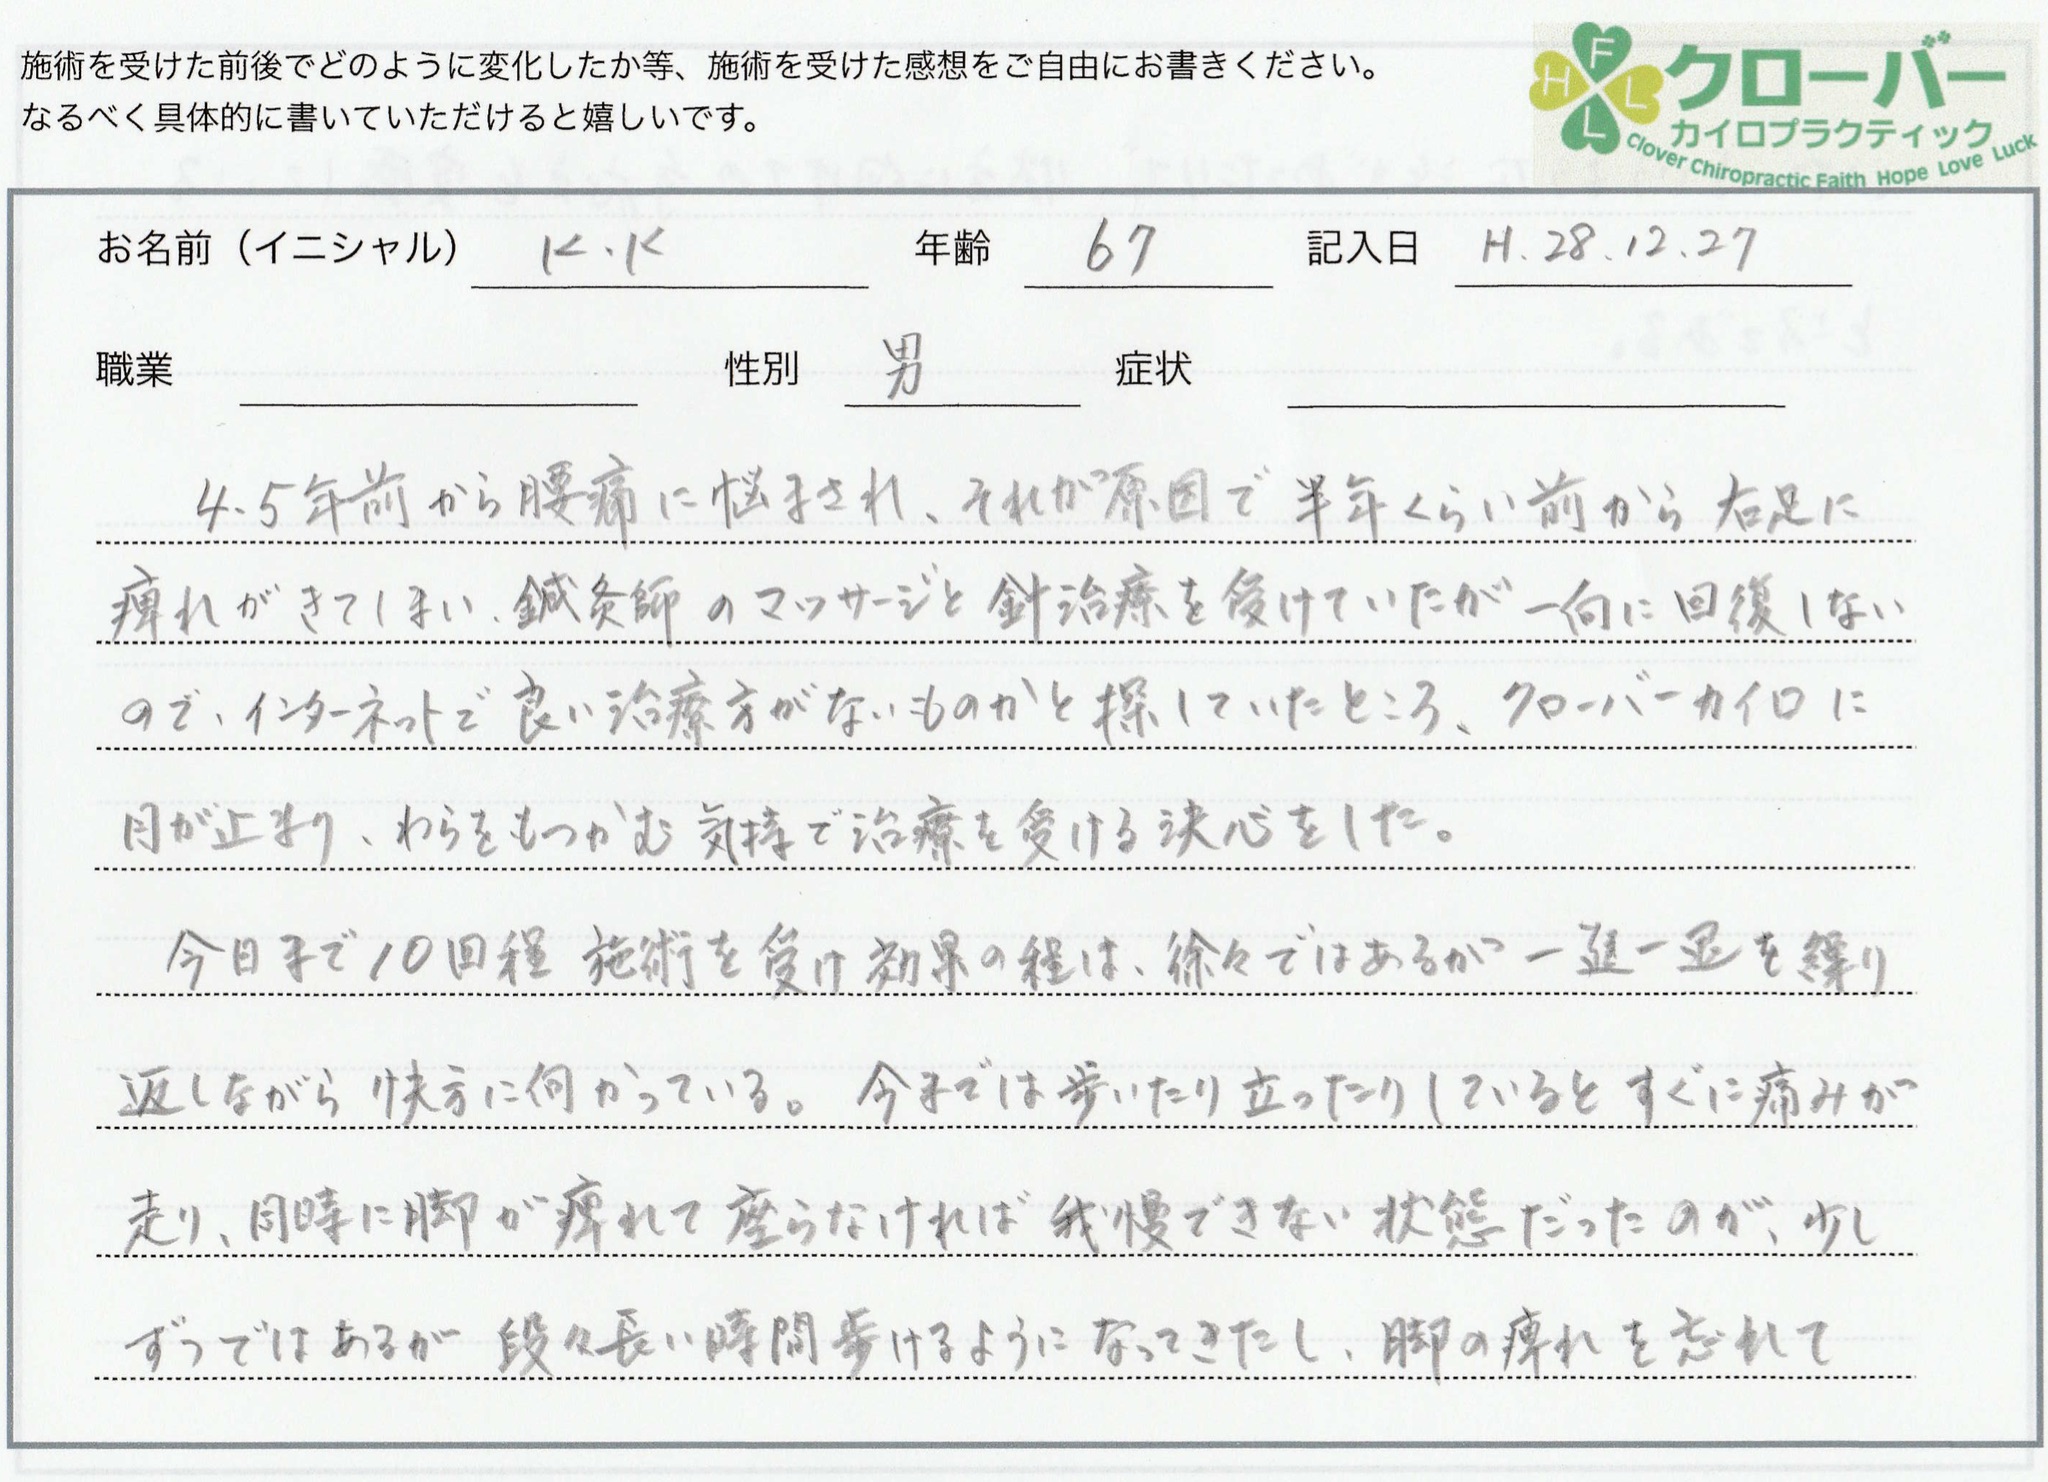 施術を受けた前後でどのように変化したか等、施術を受けた感想をご自由にお書きください。
なるべく具体的に書いていただけると嬉しいです。
H F L L
クローバー
カイロプラクティック
Clover Chiropractic Faith Hope Love Luck
お名前（イニシャル） K.K 年齢 67 記入日 H.28.12.27
職業 性別 男 症状
4.5年前から腰痛に悩まされ、それが原因で半年くらい前から右足に
痺れがきてしまい、鍼灸師のマッサージと針治療を受けていたが一向に回復しない
ので、インターネットで良い治療方がないものかと探していたところ、クローバーカイロに
目が止まり、わらをもつかむ気持で治療を受ける決心をした。
今日まで10回程施術を受け効果の程は、徐々ではあるが一進一退を繰り
返しながら快方に向かっている。今までは歩いたり立ったりしているとすぐに痛みが
走り、同時に脚が痺れて座らなければ我慢できない状態だったのが、少し
ずつではあるが段々長い時間歩けるようになってきたし、脚の痺れを忘れて